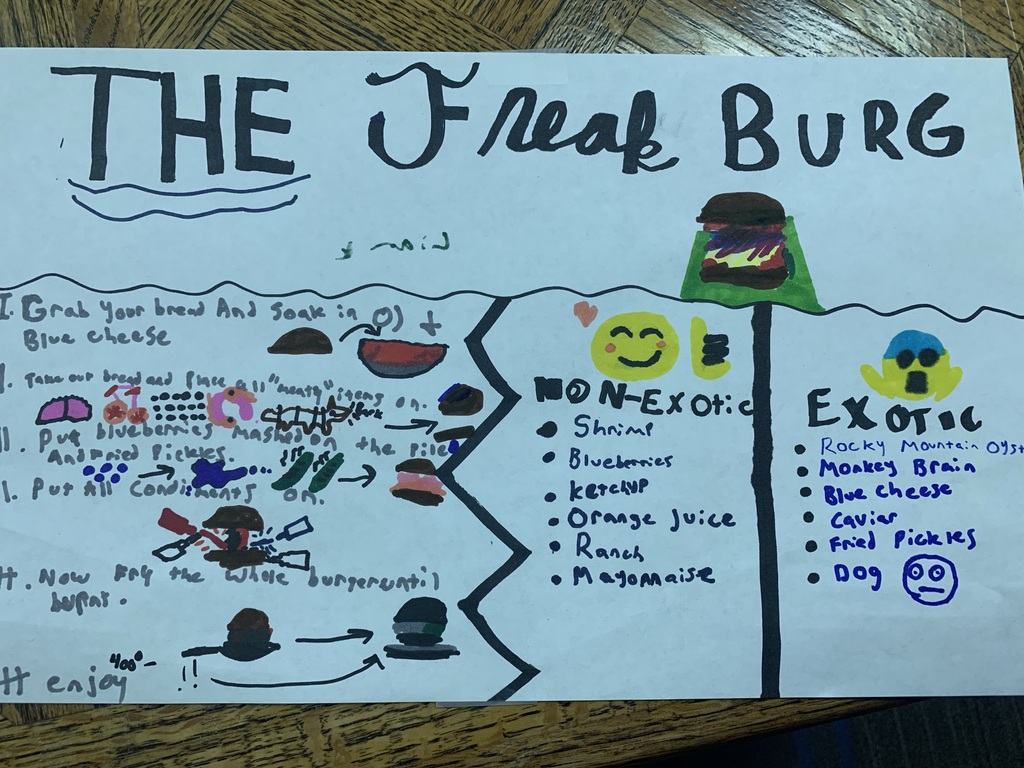 THE Freak BURG
I. Grab your bread And Soak in OJ +
Blue cheese
I. Take out bread and place all "meaty" items on.
Pork
II. Put blueberries mashed on the pile
And Fried Pickles.
I. Put All Condiments on.
H. Now Fry the whole burger until
burnt.
400°
!!
H enjoy
NON-Exotic
• Shrimp
• Blueberries
• Ketchup
• Orange Juice
• Ranch
• Mayonnaise
Exotic
• Rocky Mountain Oyst
• Monkey Brain
• Blue cheese
• Caviar
• Fried Pickles
• Dog